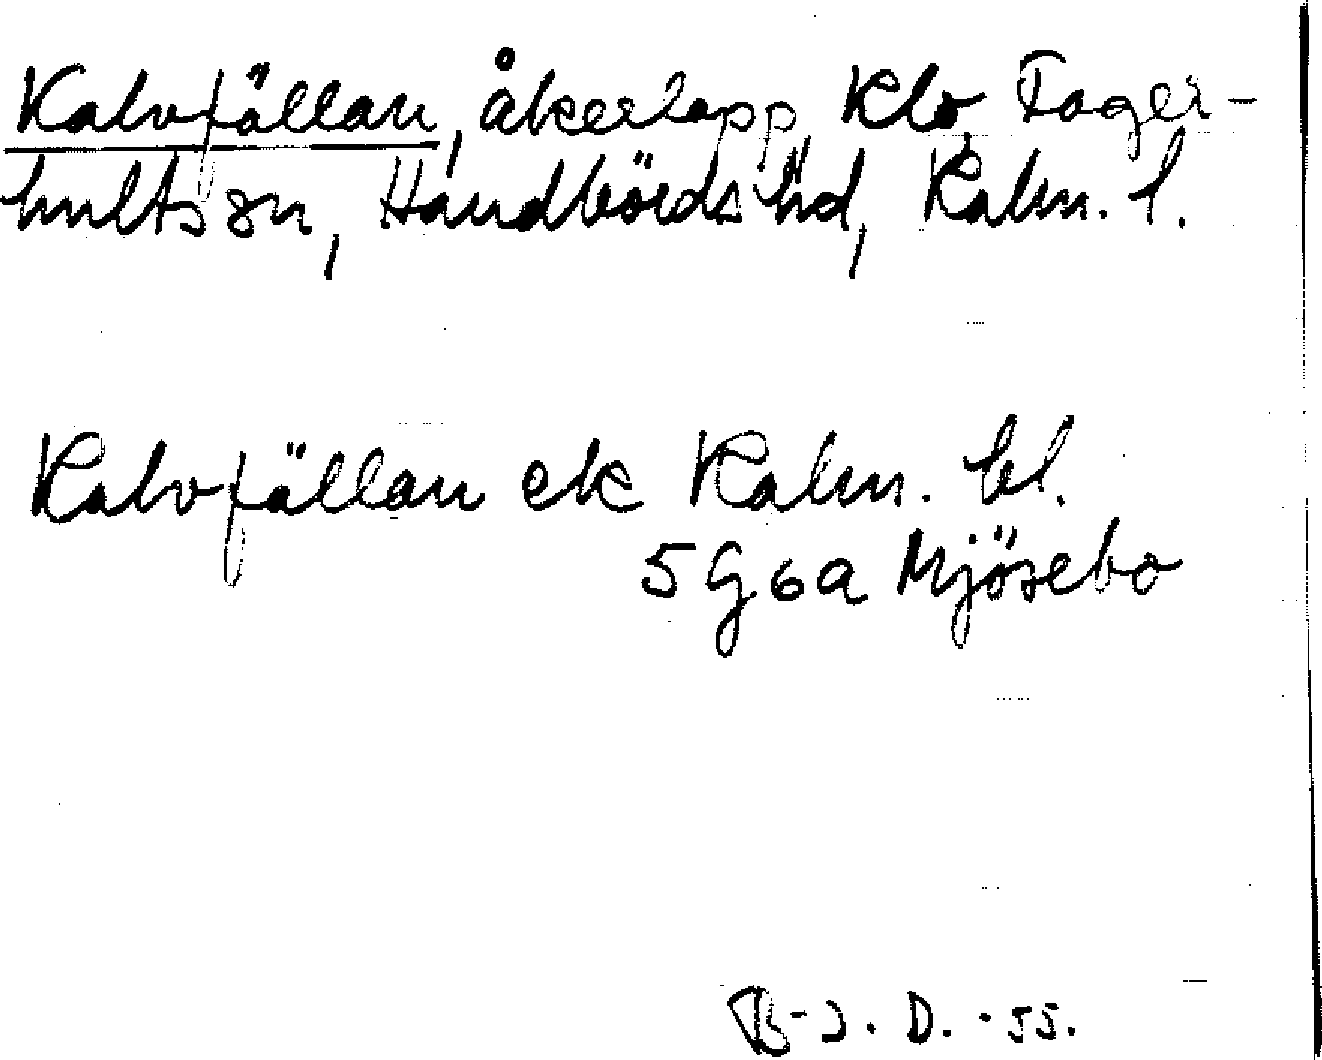 Kalvfällan, åkerlapp, Klo, Fager-
hults sn, Handbörds hd, Kalm. l.
Kalvfällan ek Kalm. bl.
5 G 6 a Mjösebo
B-J. D. -55.